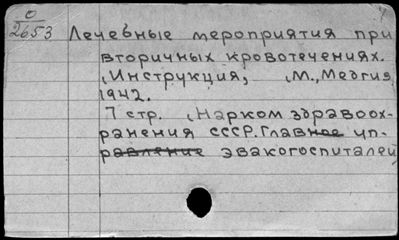 О
2653
Лечебные мероприятия при
вторичных кровотечениях.
Инструкция, М., Медгиз,
1942.
7 стр. Нарком здравоох-
ранения СССР. Главное уп-
равление эвакогоспиталей